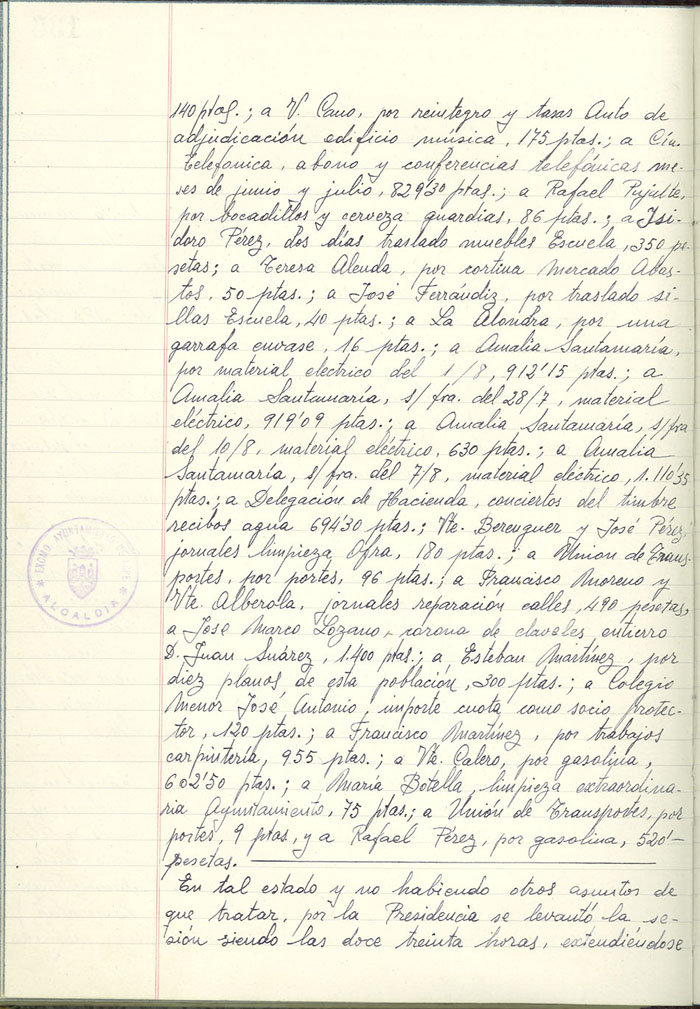 140 ptas.; a V. Cano, por reintegro y tasas Auto de
adjudicación edificio música, 175 ptas.; a Cía.
Telefónica, abono y conferencias telefónicas me-
ses de junio y julio, 829'30 ptas.; a Rafael Pujalte,
por bocadillos y cerveza guardias, 86 ptas.; a Isi-
doro Pérez, dos días traslado muebles Escuela, 350 pe-
setas; a Teresa Alenda, por cortina Mercado Abas-
tos, 50 ptas.; a José Ferrándiz, por traslado si-
llas Escuela, 40 ptas.; a La Alondra, por una
garrafa envase, 16 ptas.; a Amalia Santamaría,
por material eléctrico del 1/8, 912'15 ptas.; a
Amalia Santamaría, s/ fra. del 28/7, material
eléctrico, 919'09 ptas.; a Amalia Santamaría, s/fra
del 10/8, material eléctrico, 630 ptas.; a Amalia
Santamaría, s/ fra. del 7/8, material eléctrico, 1.110'35
ptas.; a Delegación de Hacienda, conciertos del timbre
recibos agua 694'30 ptas.; Vte. Berenguer y José Pérez,
jornales limpieza Ofra, 180 ptas.; a Unión de Trans-
portes, por portes, 96 ptas.; a Francisco Moreno y
Vte. Alberola, jornales reparación calles, 490 pesetas,
a José Marco Lozano, corona de claveles entierro
D. Juan Suárez, 1.400 ptas.; a Esteban Martínez, por
diez planos de esta población, 300 ptas.; a Colegio
Menor José Antonio, importe cuota como socio protec-
tor, 120 ptas.; a Francisco Martínez, por trabajos
carpintería, 955 ptas.; a Vte. Calero, por gasolina,
602'50 ptas.; a María Botella, limpieza extraordina-
ria Ayuntamiento, 75 ptas.; a Unión de Transportes, por
portes, 9 ptas, y a Rafael Pérez, por gasolina, 520'—
pesetas.
En tal estado y no habiendo otros asuntos de
que tratar, por la Presidencia se levantó la se-
sión siendo las doce treinta horas, extendiéndose
EXCMO. AYUNTAMIENTO
ALCALDIA